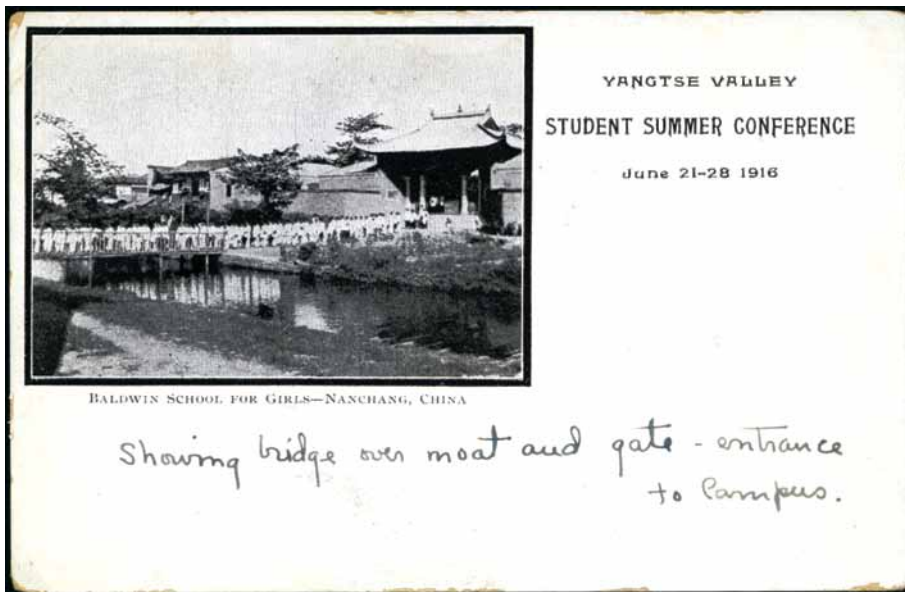 YANGTSE VALLEY
STUDENT SUMMER CONFERENCE
June 21-28 1916
BALDWIN SCHOOL FOR GIRLS—NANCHANG, CHINA
Showing bridge over moat and gate - entrance
to Campus.